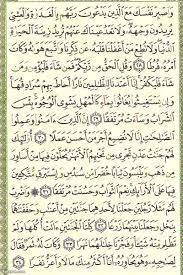 وَاصْبِرْ نَفْسَكَ مَعَ الَّذِينَ يَدْعُونَ رَبَّهُم بِالْغَدَوٰةِ وَالْعَشِيِّ
يُرِيدُونَ وَجْهَهُۥ وَلَا تَعْدُ عَيْنَاكَ عَنْهُمْ تُرِيدُ زِينَةَ الْحَيَوٰةِ
الدُّنْيَا وَلَا تُطِعْ مَنْ أَغْفَلْنَا قَلْبَهُۥ عَن ذِكْرِنَا وَاتَّبَعَ هَوَىٰهُ وَكَانَ
أَمْرُهُۥ فُرُطًا ٢٨ وَقُلِ الْحَقُّ مِن رَّبِّكُمْ فَمَن شَآءَ فَلْيُؤْمِن وَمَن
شَآءَ فَلْيَكْفُرْ إِنَّآ أَعْتَدْنَا لِلظَّٰلِمِينَ نَارًا أَحَاطَ بِهِمْ سُرَادِقُهَا
وَإِن يَسْتَغِيثُوا يُغَاثُوا بِمَآءٍ كَالْمُهْلِ يَشْوِي الْوُجُوهَ بِئْسَ
الشَّرَابُ وَسَآءَتْ مُرْتَفَقًا ٢٩ إِنَّ الَّذِينَ ءَامَنُوا وَعَمِلُوا
الصَّٰلِحَٰتِ إِنَّا لَا نُضِيعُ أَجْرَ مَنْ أَحْسَنَ عَمَلًا ٣٠ أُولَٰٓئِكَ
لَهُمْ جَنَّٰتُ عَدْنٍ تَجْرِي مِن تَحْتِهِمُ الْأَنْهَٰرُ يُحَلَّوْنَ فِيهَا
مِنْ أَسَاوِرَ مِن ذَهَبٍ وَيَلْبَسُونَ ثِيَابًا خُضْرًا مِّن سُندُسٍ وَإِسْتَبْرَقٍ
مُّتَّكِـِٔينَ فِيهَا عَلَى الْأَرَآئِكِ نِعْمَ الثَّوَابُ وَحَسُنَتْ مُرْتَفَقًا ٣١
وَاضْرِبْ لَهُم مَّثَلًا رَّجُلَيْنِ جَعَلْنَا لِأَحَدِهِمَا جَنَّتَيْنِ مِنْ أَعْنَٰبٍ وَحَفَفْنَٰهُمَا
بِنَخْلٍ وَجَعَلْنَا بَيْنَهُمَا زَرْعًا ٣٢ كِلْتَا الْجَنَّتَيْنِ ءَاتَتْ أُكُلَهَا وَلَمْ
تَظْلِم مِّنْهُ شَيْـًٔا وَفَجَّرْنَا خِلَٰلَهُمَا نَهَرًا ٣٣ وَكَانَ لَهُۥ ثَمَرٌ فَقَالَ
لِصَٰحِبِهِۦ وَهُوَ يُحَاوِرُهُۥٓ أَنَا۠ أَكْثَرُ مِنكَ مَالًا وَأَعَزُّ نَفَرًا ٣٤